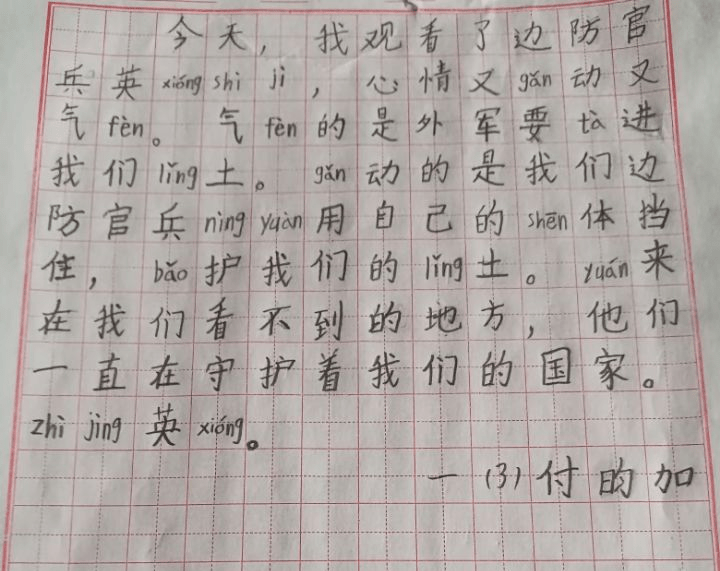 今天，我观看了边防官
兵英xióng shì jì，心情又gǎn动又
气fèn。气fèn的是外军要tà进
我们lǐng土。gǎn动的是我们边
防官兵nìng yuàn用自己的shēn体挡
住，bǎo护我们的lǐng土。yuán来
在我们看不到的地方，他们
一直在守护着我们的国家。
zhì jìng英xióng。
一（3）付的加